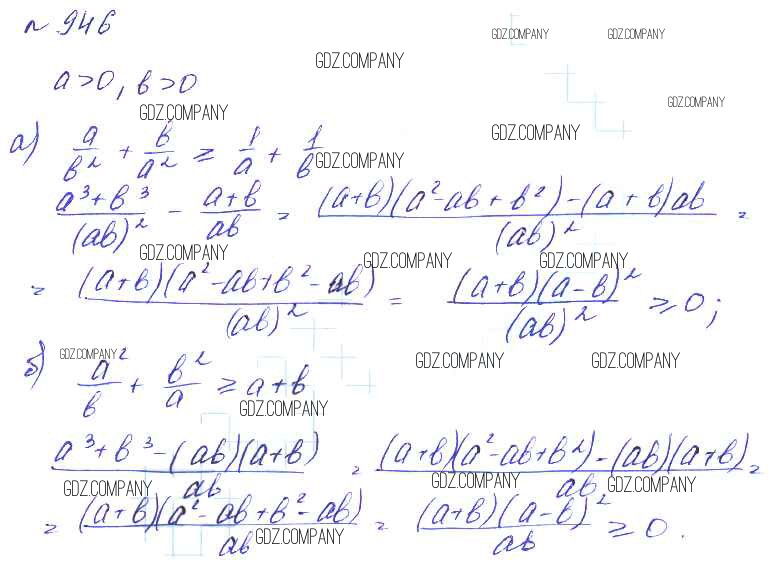 № 946
GDZ.COMPANY GDZ.COMPANY
GDZ.COMPANY
a > 0, b > 0
GDZ.COMPANY
GDZ.COMPANY
GDZ.COMPANY
а) a/b² + b/a² ≥ 1/a + 1/b
GDZ.COMPANY
(a³ + b³)/(ab)² - (a + b)/ab = ((a + b)(a² - ab + b²) - (a + b)ab)/(ab)² =
GDZ.COMPANY GDZ.COMPANY GDZ.COMPANY
= ((a + b)(a² - ab + b² - ab))/(ab)² = ((a + b)(a - b)²)/(ab)² ≥ 0;
GDZ.COMPANY GDZ.COMPANY GDZ.COMPANY
б) a²/b + b²/a ≥ a + b
GDZ.COMPANY
(a³ + b³ - (ab)(a + b))/ab = ((a + b)(a² - ab + b²) - (ab)(a + b))/ab =
GDZ.COMPANY GDZ.COMPANY GDZ.COMPANY
= ((a + b)(a² - ab + b² - ab))/ab = ((a + b)(a - b)²)/ab ≥ 0.
GDZ.COMPANY